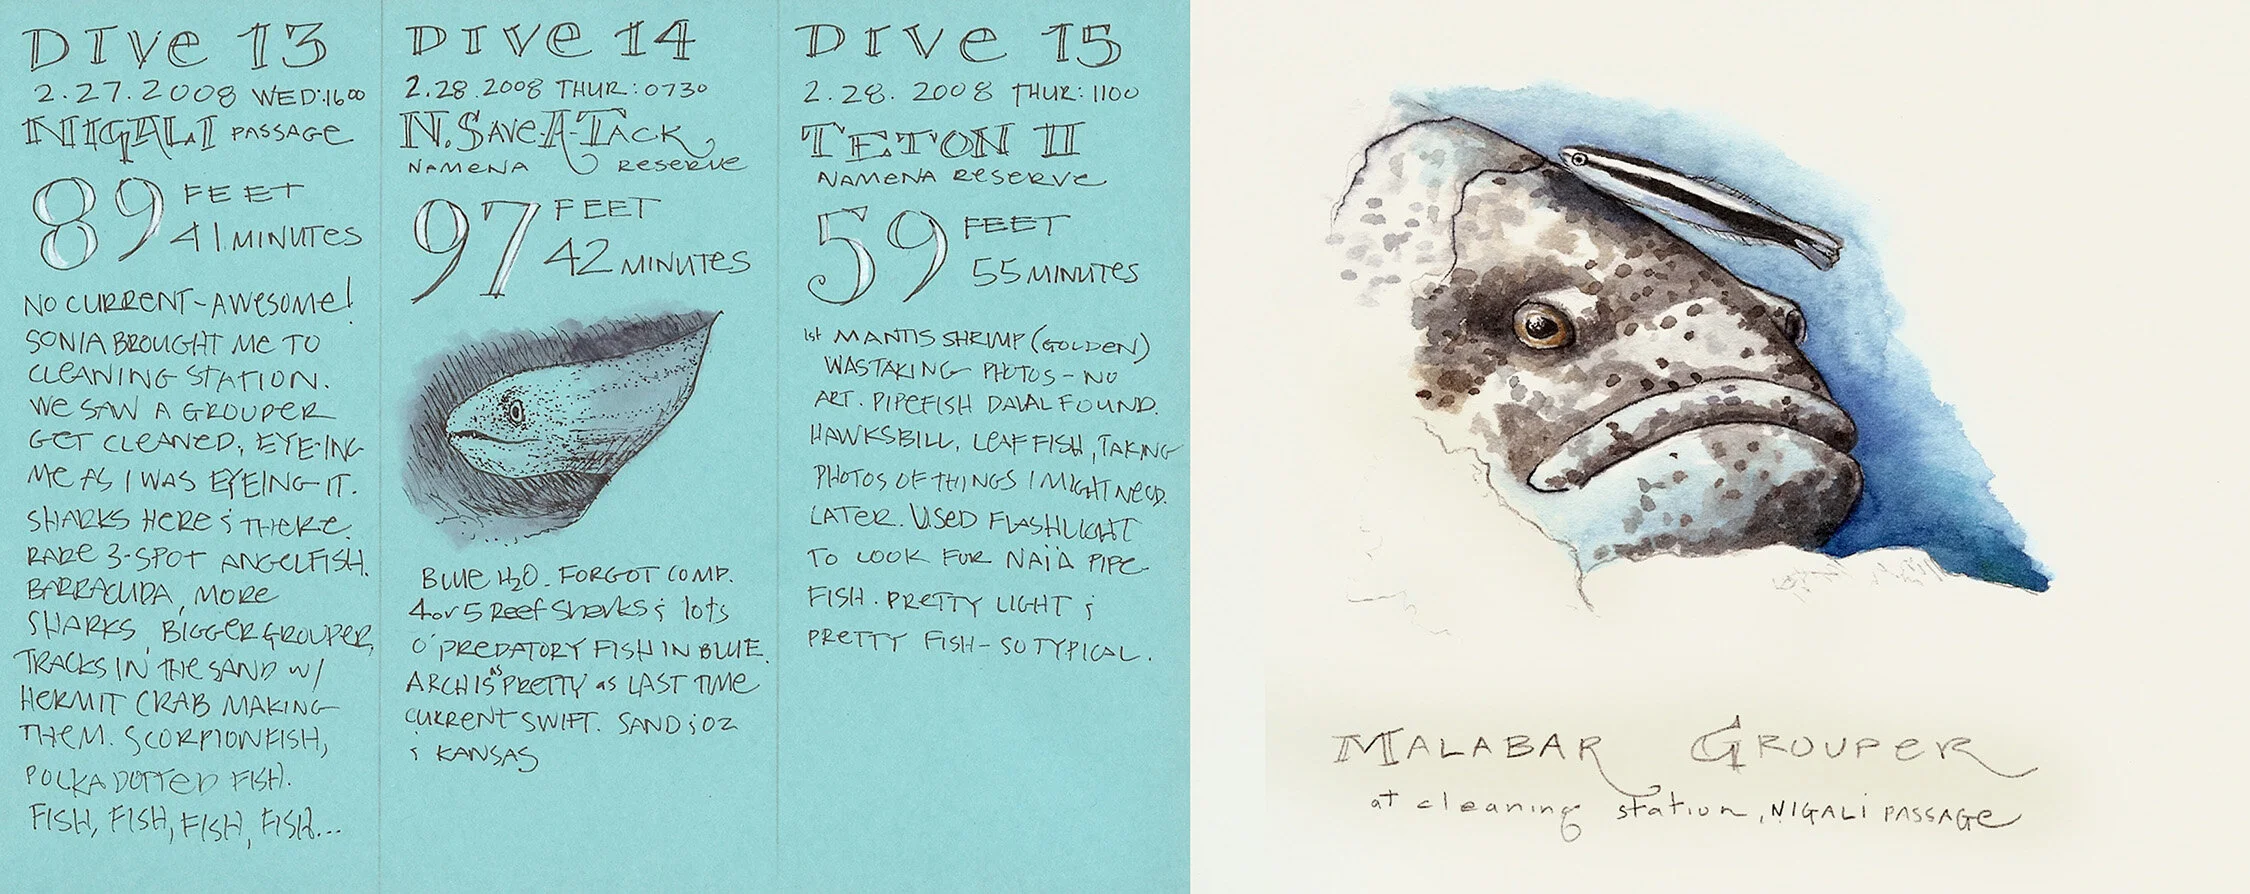 DIVE 13
2.27.2008 WED:1600
NIGALI PASSAGE
89 FEET
41 MINUTES
NO CURRENT-AWESOME!
SONIA BROUGHT ME TO
CLEANING STATION.
WE SAW A GROUPER
GET CLEANED, EYE-ING
ME AS I WAS EYEING IT.
SHARKS HERE & THERE.
RARE 3-SPOT ANGELFISH.
BARRACUDA, MORE
SHARKS, BIGGER GROUPER,
TRACKS IN THE SAND W/
HERMIT CRAB MAKING
THEM. SCORPIONFISH,
POLKA DOTTED FISH.
FISH, FISH, FISH, FISH...
DIVE 14
2.28.2008 THUR:0730
N. SAVE-A-TACK
NAMENA RESERVE
97 FEET
42 MINUTES
BLUE H2O. FORGOT COMP.
4 or 5 Reef Sharks & lots
O' PREDATORY FISH IN BLUE.
ARCH IS AS PRETTY as LAST TIME
CURRENT SWIFT. SAND & OZ
& KANSAS
DIVE 15
2.28.2008 THUR:1100
TETON II
NAMENA RESERVE
59 FEET
55 MINUTES
1st MANTIS SHRIMP (GOLDEN)
WAS TAKING PHOTOS - NO
ART. PIPEFISH FOUND.
HAWKSBILL, LEAF FISH, TAKING
PHOTOS OF THINGS I MIGHT NEED
LATER. USED FLASHLIGHT
TO LOOK FUR NAI'A PIPE-
FISH. PRETTY LIGHT &
PRETTY FISH - SO TYPICAL.
MALABAR GROUPER
at cleaning station, NIGALI PASSAGE